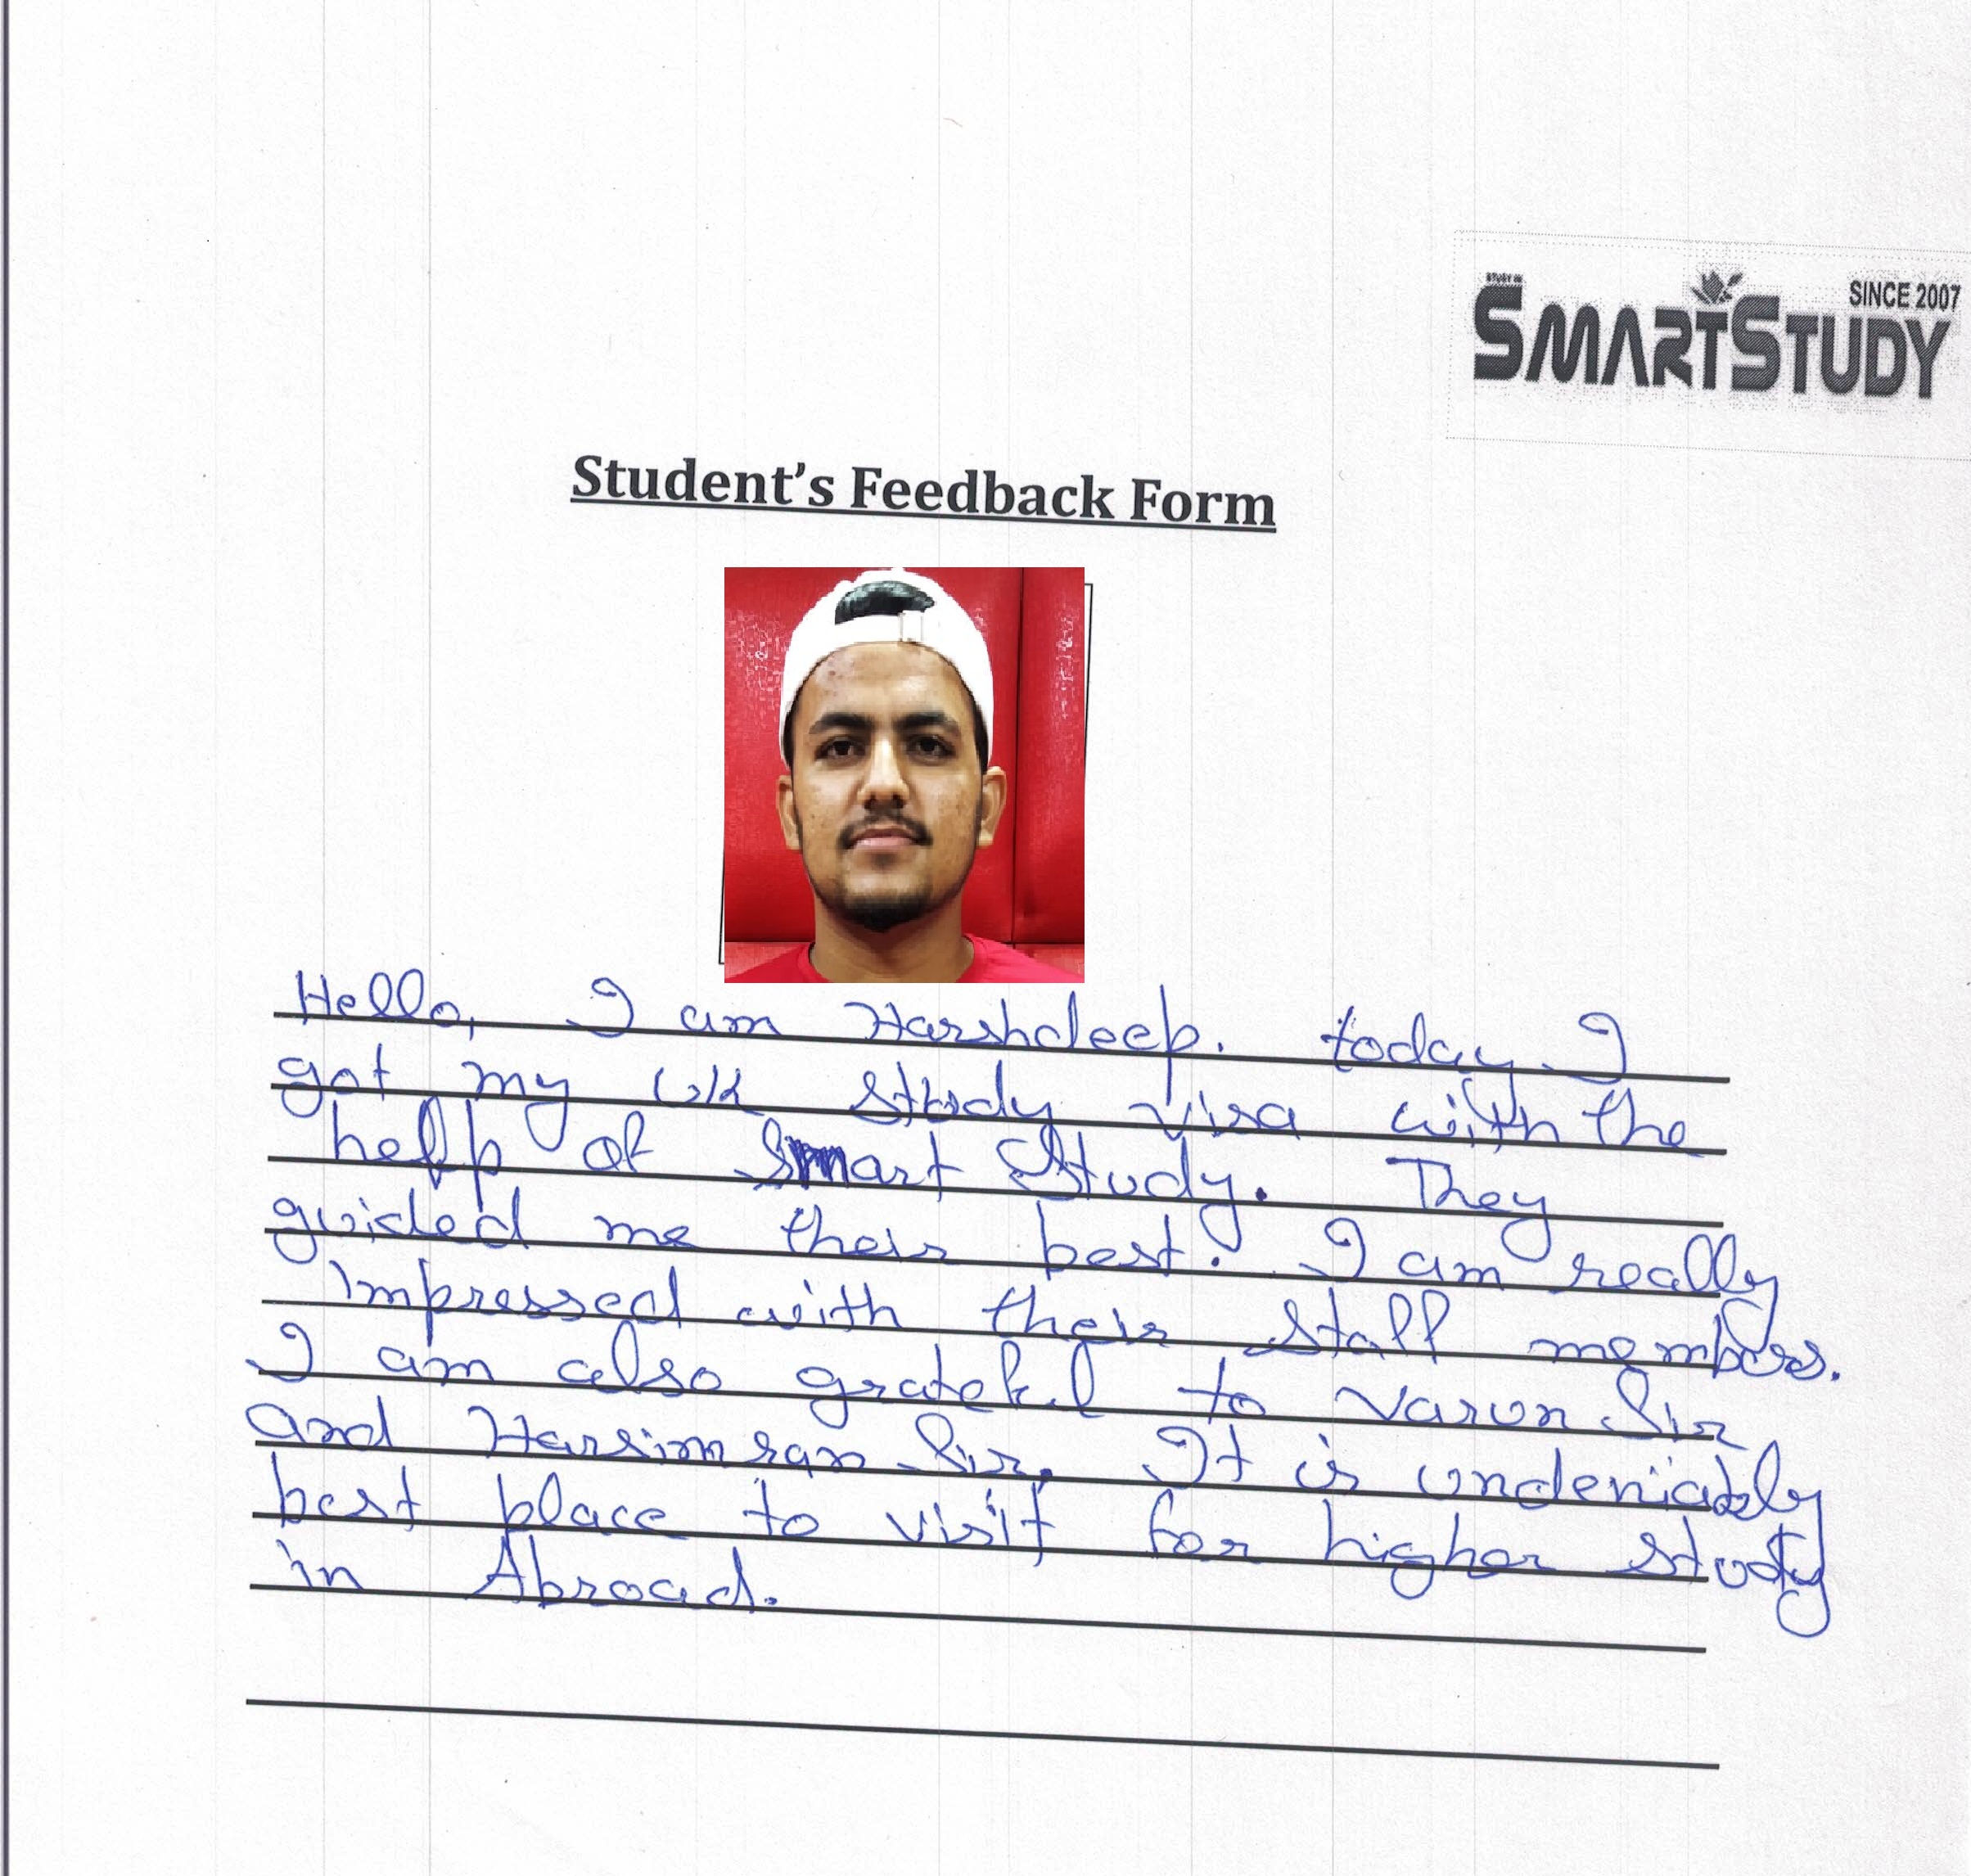 STUDY IN
SMARTSTUDY
SINCE 2007
Student's Feedback Form
Hello, I am Harshdeep. today I
got my UK study visa with the
help of Smart Study. They
guided me their best. I am really
impressed with their staff members.
I am also grateful to Varun Sir
and Harsimran Sir. It is undeniably
best place to visit for higher study
in Abroad.